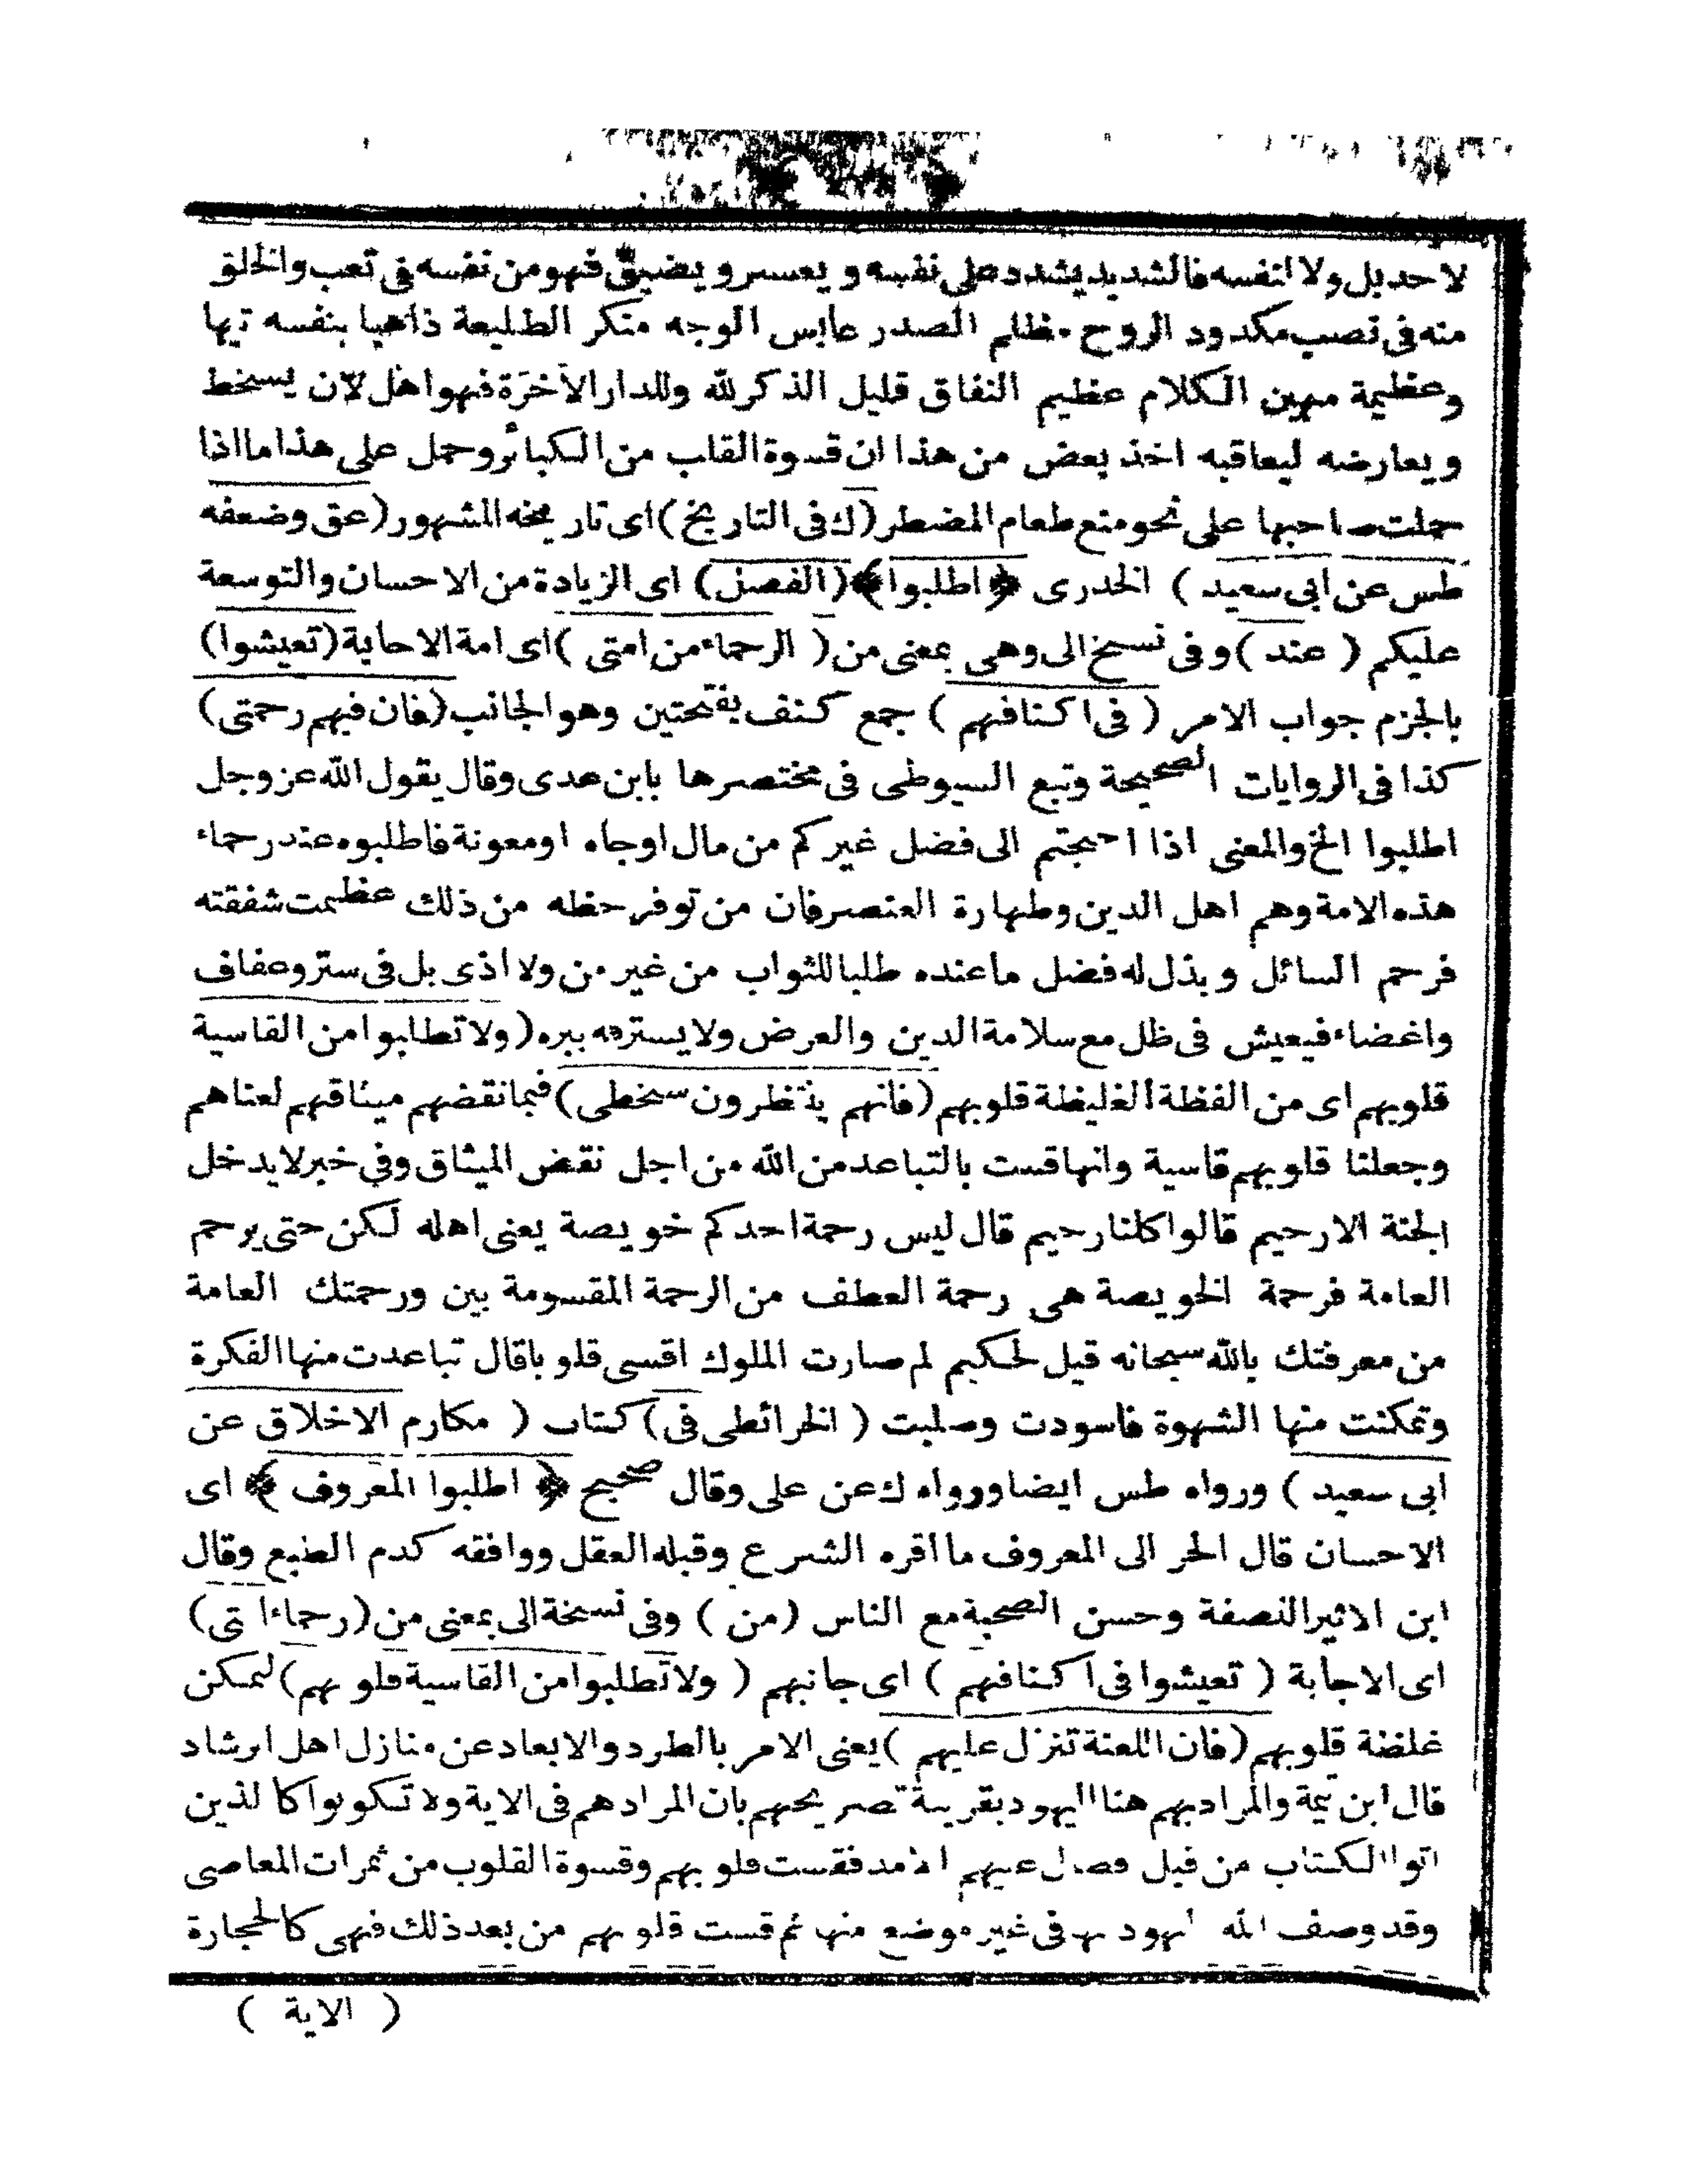 لاحد بل ولا لنفسه فالشديد يشدد على نفسه ويعسر ويضيق فهو من نفسه فى تعب والخلق
منه فى نصب مكدود الروح مظلم الصدر عابس الوجه منكر الطليعة ذاهبا بنفسه تيها
وعظيمة مهين الكلام عظيم النفاق قليل الذكر لله وللدار الآخرة فهو اهل لآن يسخط
ويعارضه ليعاقبه اخذ بعض من هذا ان قسوة القلب من الكبائر وحمل على هذا ما اذا
حملت صاحبها على نحو منع طعام المضطر (ك فى التاريخ) اى تاريخه المشهور (عق وضعفه
طس عن ابى سعيد) الخدرى ﴿اطلبوا﴾ (الفضل) اى الزيادة من الاحسان والتوسعة
عليكم (عند) وفى نسخ الى وهى بمعنى من (الرحماء من امتى) اى امة الاجابة (تعيشوا)
بالجزم جواب الامر (فى اكنافهم) جمع كنف بفتحتين وهو الجانب (فان فيهم رحمتى)
كذا فى الروايات الصحيحة وتبع السيوطى فى مختصرها بابن عدى وقال يقول الله عز وجل
اطلبوا الخ والمعنى اذا احتجتم الى فضل غيركم من مال اوجاه او معونة فاطلبوه عند رحماء
هذه الامة وهم اهل الدين وطهارة العنصر فان من توفر حظه من ذلك عظمت شفقته
فرحم السائل وبذل له فضل ما عنده طلبا للثواب من غير من ولا اذى بل فى ستر وعفاف
واغضاء فيعيش فى ظل مع سلامة الدين والعرض ولا يسترقه ببره (ولا تطلبوا من القاسية
قلوبهم اى من الفظة الغليظة قلوبهم (فانهم ينتظرون سخطى) فبما نقضهم ميثاقهم لعناهم
وجعلنا قلوبهم قاسية وانها قست بالتباعد من الله من اجل نقض الميثاق وفي خبر لا يدخل
الجنة الا رحيم قالوا كلنا رحيم قال ليس رحمة احدكم خويصة يعنى اهله لكن حتى يرحم
العامة فرحمة الخويصة هى رحمة العطف من الرحمة المقسومة بين ورحمتك العامة
من معرفتك بالله سبحانه قيل لحكيم لم صارت الملوك اقسى قلوبا قال تباعدت منها الفكرة
وتمكنت منها الشهوة فاسودت وصلبت (الخرائطى فى) كتاب (مكارم الاخلاق عن
ابى سعيد) ورواه طس ايضا ورواه ك عن على وقال صحيح ﴿اطلبوا المعروف﴾ اى
الاحسان قال الحر الى المعروف ما اقره الشرع وقبله العقل ووافقه كدم الطبع وقال
ابن الاثير النصفة وحسن الصحبة مع الناس (من) وفى نسخة الى بمعنى من (رحماء ا تى)
اى الاجابة (تعيشوا فى اكنافهم) اى جانبهم (ولا تطلبوا من القاسية قلوبهم) لتمكن
غلضة قلوبهم (فان اللعنة تنزل عليهم) يعنى الامر بالطرد والابعاد عن منازل اهل الرشاد
قال ابن تيمة والمراد بهم هنا اليهود بقرينة تصريحهم بان المراد هم فى الاية ولا تكونوا كالذين
اتوا الكتاب من قبل فطال عليهم الامد فقست قلوبهم وقسوة القلوب من ثمرات المعاصى
وقد وصف الله اليهود بها فى غير موضع منها ثم قست قلوبهم من بعد ذلك فهى كالحجارة
( الاية )